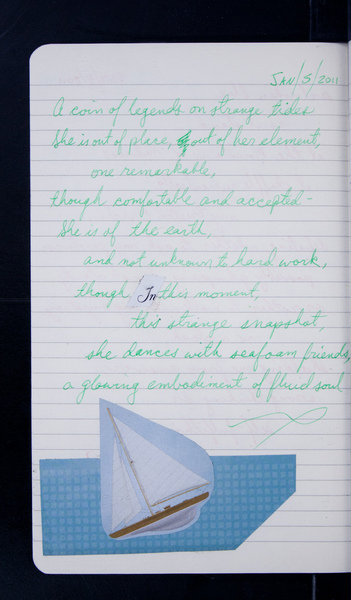 JAN/5/2011
A coin of legends on strange tides
She is out of place, out of her element,
one remarkable,
though comfortable and accepted -
She is of the earth,
and not unknown to hard work,
though In this moment,
this strange snapshot,
she dances with seafoam friends,
a glowing embodiment of fluid soul